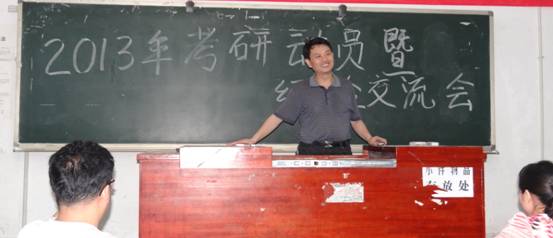 2013年考研动员暨
经验交流会
小件物品
存放处